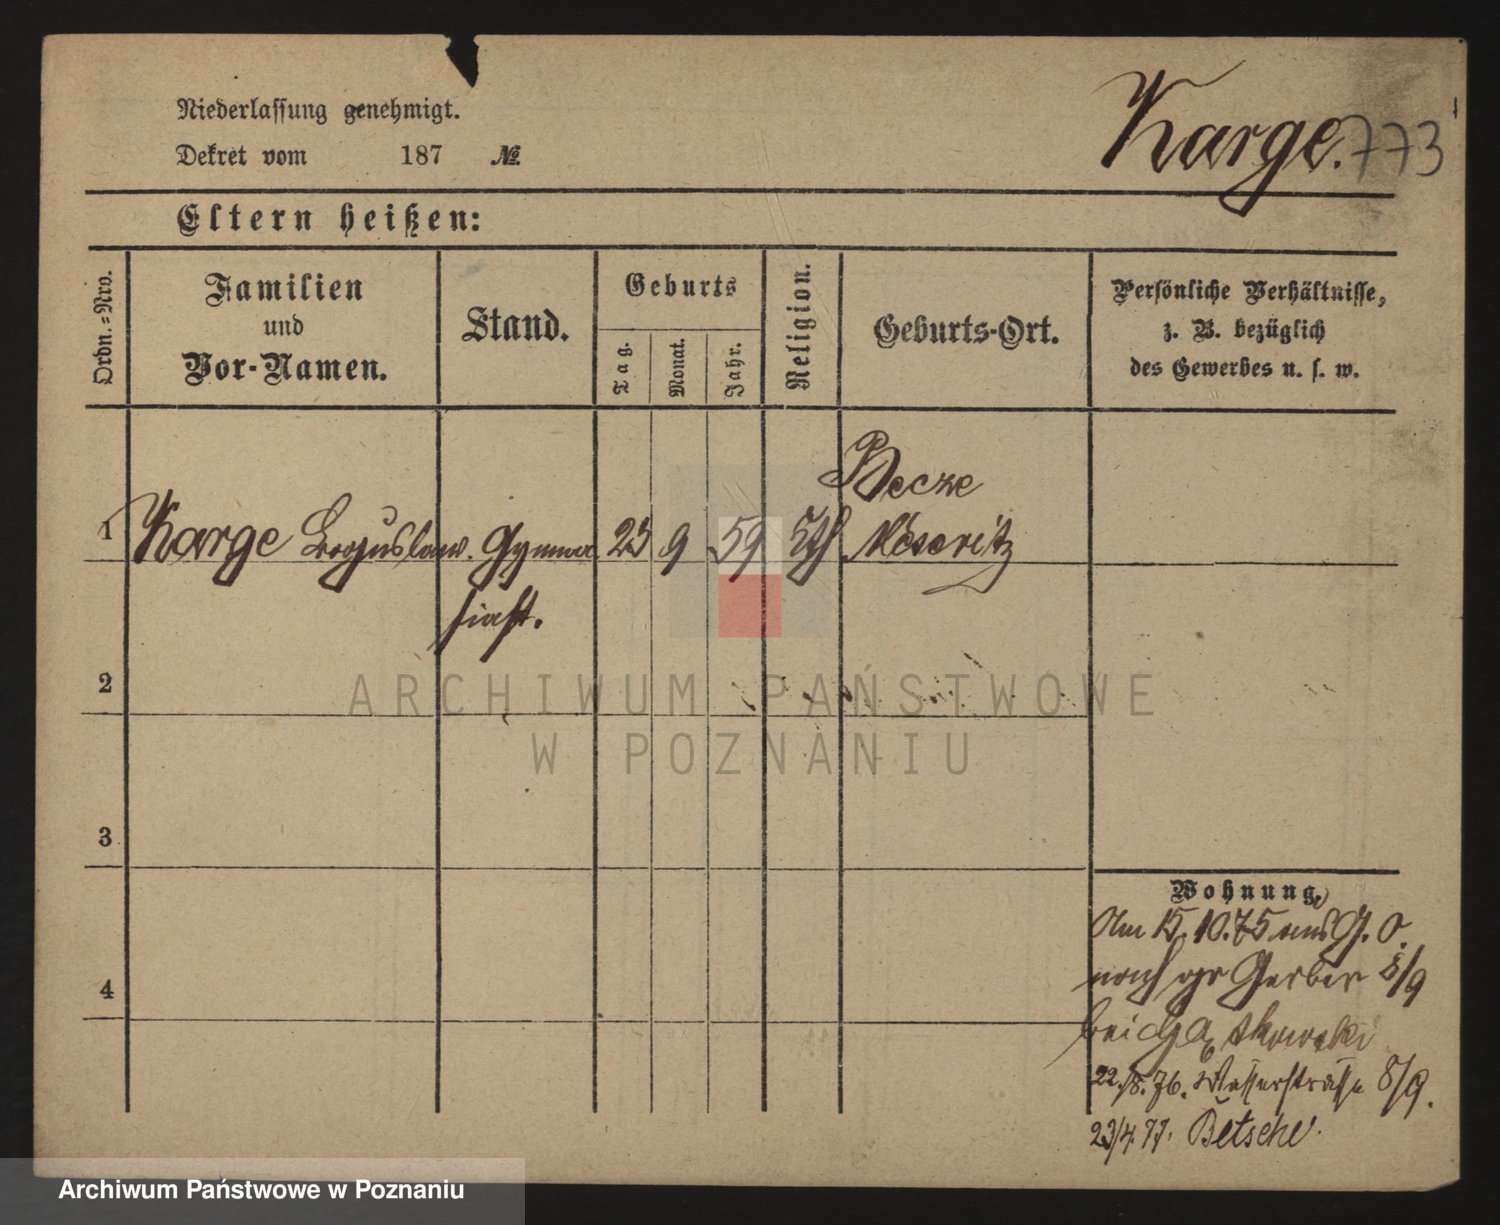 Niederlassung genehmigt.
Dekret vom 187 №
Karge. 773
Eltern heißen:
Ordn.=Nro.
Familien
und
Vor-Namen.
Stand.
Geburts
Tag.
Monat.
Jahr.
Religion.
Geburts-Ort.
Persönliche Verhältnisse,
z. B. bezüglich
des Gewerbes u. s. w.
Becze
1 Karge Boguslaw. Gymna 23 9 59 kth Meseritz
siast.
2
3
4
Wohnung
Am 15.10.75 aus G. O.
nach gr Gerber 8/9
bei
22./8.76. Wasserstraße 8/9.
23/4.77. Betsche.
ARCHIWUM PAŃSTWOWE
W POZNANIU
Archiwum Państwowe w Poznaniu